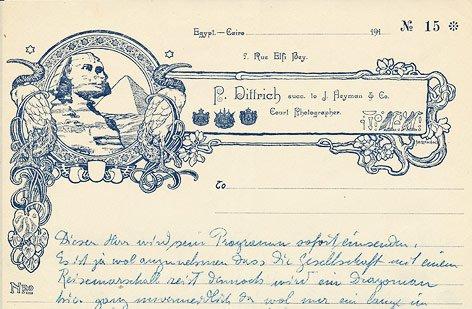 Egypt.–Cairo 191 № 15 *
7. Rue Elfi Bey.
P. Dittrich succ. to J. Heyman & Co.
Court Photographer.
To
Dieser Herr wird sein Programm sofort einsenden,
Es ist ja wol anzunehmen dass die Gesellschaft mit einem
Reisemarschall reist dennoch wird ein Dragoman
hier ganz unvermeidlich da wol nur ein lange in
Nro